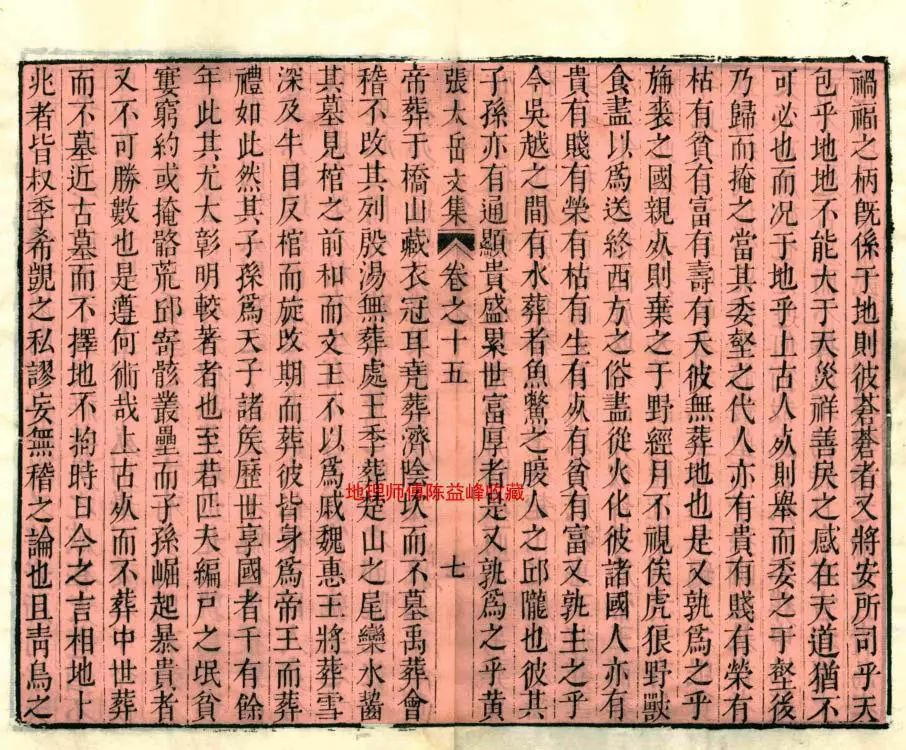 禍福之柄既係于地則彼蒼蒼者又將安所司乎天
包乎地地不能大于天災祥善戾之感在天道猶不
可必也而况于地乎上古人𣦸則舉而委之于壑後
乃歸而掩之當其委壑之代人亦有貴有賤有榮有
枯有貧有富有壽有夭彼無葬地也是又孰爲之乎
旃裘之國親𣦸則棄之于野經月不視俟虎狼野獸
食盡以爲送終西方之俗盡從火化彼諸國人亦有
貴有賤有榮有枯有生有𣦸有貧有富又孰主之乎
今吳越之間有水葬者魚鱉之腹人之邱隴也彼其
子孫亦有通顯貴盛累世富厚者是又孰爲之乎黃
張太岳文集 卷之十五 七
帝葬于橋山藏衣冠耳堯葬濟陰坎而不墓禹葬會
稽不改其列殷湯無葬處王季葬楚山之尾欒水齧
其墓見棺之前和而文王不以爲戚魏惠王將葬雪
深及牛目反棺而旋改期而葬彼皆身爲帝王而葬
禮如此然其子孫爲天子諸矦歷世享國者千有餘
年此其尤大彰明較著者也至若匹夫編戶之氓貧
窶窮約或掩骼荒邱寄骸叢壘而子孫崛起暴貴者
又不可勝數也是遵何術哉上古𣦸而不葬中世葬
而不墓近古墓而不擇地不拘時日今之言相地卜
兆者皆叔季希覬之私謬妄無稽之論也且靑鳥之
地理师傅陈益峰收藏